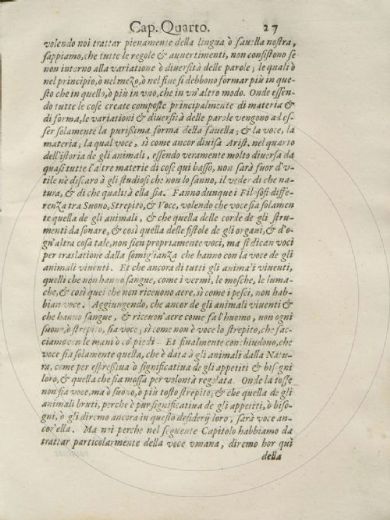 Cap. Quarto. 27
volendo noi trattar pienamente della lingua ò fauella nostra,
sappiamo, che tutte le regole & auuertimenti, non consistono se
non intorno alla variatione ò diuersità delle parole, le quali ò
nel principio, ò nel mezo, ò nel fine si debbono formar più in que-
sto che in quello, ò più in vno, che in vn'altro modo. Onde essen-
do tutte le cose create composte principalmente di materia &
di forma, le variationi & diuersità delle parole vengono ad es-
ser solamente la purissima forma della fauella; & la voce, la
materia; la qual voce, si come ancor diuisa Arist. nel quarto
dell'istoria de gli animali, essendo veramente molto diuersa da
quasi tutte l'altre materie di cose quì basso, non sarà fuor d'v-
tile nè discaro à gli studiosi che non lo sanno, il veder di che na-
tura, & di che qualità ella sia. Fanno dunque i Filosofi diffe-
renza tra Suono, Strepito, & Voce, volendo che voce sia solamen-
te quella de gli animali, & che quella delle corde de gli stru-
menti da sonare, & così quella delle fistole de gli organi, & d'o-
gn'altra cosa tale, non sien propriamente voci, ma si dican voci
per traslatione dalla somiglianza che hanno con la voce de gli
animali viuenti. Et che ancora di tutti gli animali viuenti,
quelli che non hanno sangue, come i vermi, le mosche, le luma-
che, & così quei che non riceuono aere, si come i pesci, non hab-
bian voce. Aggiungendo, che ancor de gli animali viuenti &
che hanno sangue, & riceuon'aere come fa l'huomo, non ogni
suono, ò strepito, sia voce; si come non è voce lo strepito, che fac-
ciamo con le mani ò co' piedi. Et finalmente conchiudono, che
voce sia solamente quella, che è data à gli animali dalla Natu-
ra, come per espressiua ò significatiua de gli appetiti & bisogni
loro, & quella che sia mossa per volontà regolata. Onde la tosse
non sia voce, ma ò suono, ò più tosto strepito; & che quella de gli
animali bruti, perche è pur significatiua de gli appetiti, ò biso-
gni, ò gli diremo ancora in questo desiderij loro, sarà voce an-
cor'ella. Ma noi perche nel seguente Capitolo habbiamo da
trattar particolarmente della voce vmana, diremo hor quì
della